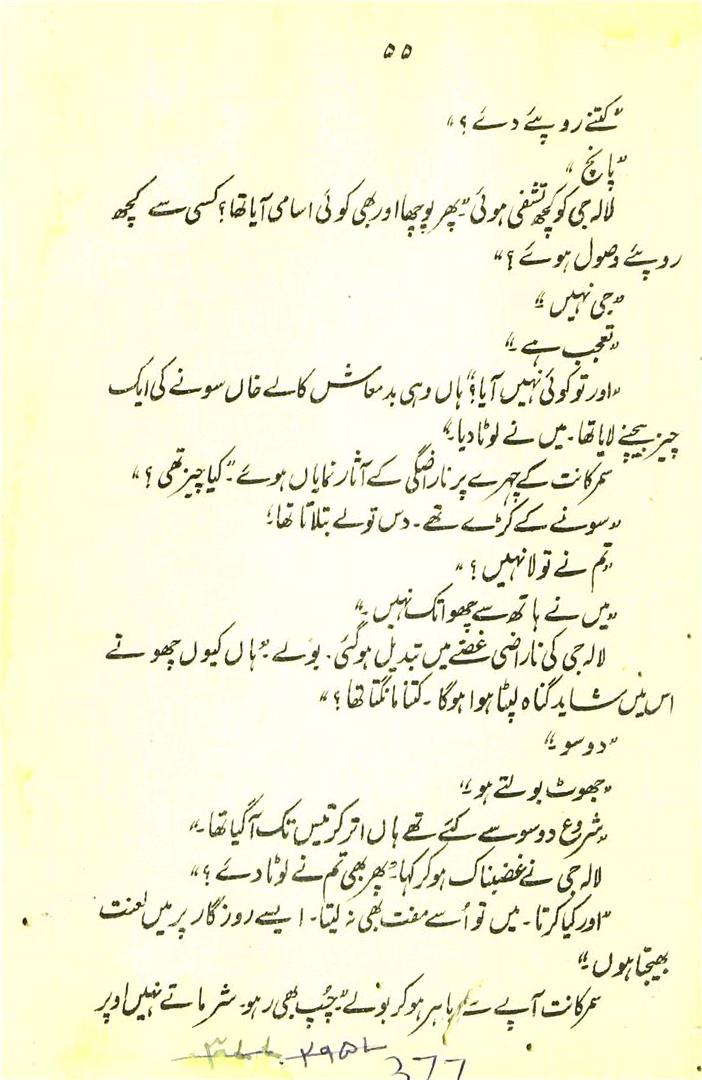 ۵۵
"کتنے روپئے دئے؟"
"پانچ"
لالہ جی کو کچھ تشفی ہوئی۔ "پھر پوچھا اور بھی کوئی اسامی آیا تھا؟ کسی سے کچھ
روپئے وصول ہوئے؟"
"جی نہیں۔"
"تعجب ہے۔"
"اور تو کوئی نہیں آیا؟" ہاں وہی بدمعاش کالے خاں سونے کی ایک
چیز بیچنے لایا تھا۔ میں نے لوٹا دیا۔"
سمرکانت کے چہرے پر ناراضگی کے آثار نمایاں ہوئے۔ "کیا چیز تھی؟"
"سونے کے کڑے تھے۔ دس تولے بتلاتا تھا۔"
"تم نے تولا نہیں؟"
"میں نے ہاتھ سے چھوا تک نہیں۔"
لالہ جی کی ناراضی غصّے میں تبدیل ہوگئی۔ بولے۔ "ہاں کیوں چھوتے
اس میں شاید گناہ لپٹا ہوا ہوگا۔ کتنا مانگتا تھا؟"
"دو سو۔"
"جھوٹ بولتے ہو۔"
"شروع دو سو سے کئے تھے ہاں اتر کر تیس تک آگیا تھا۔"
لالہ جی نے غضبناک ہو کر کہا۔ "پھر بھی تم نے لوٹا دئے؟"
"اور کیا کرتا۔ میں تو اُسے مفت بھی نہ لیتا۔ ایسے روزگار پر میں لعنت
بھیجتا ہوں۔"
سمرکانت آپے سے باہر ہو کر بولے۔ "چُپ بھی رہو۔ شرماتے نہیں اوپر
377